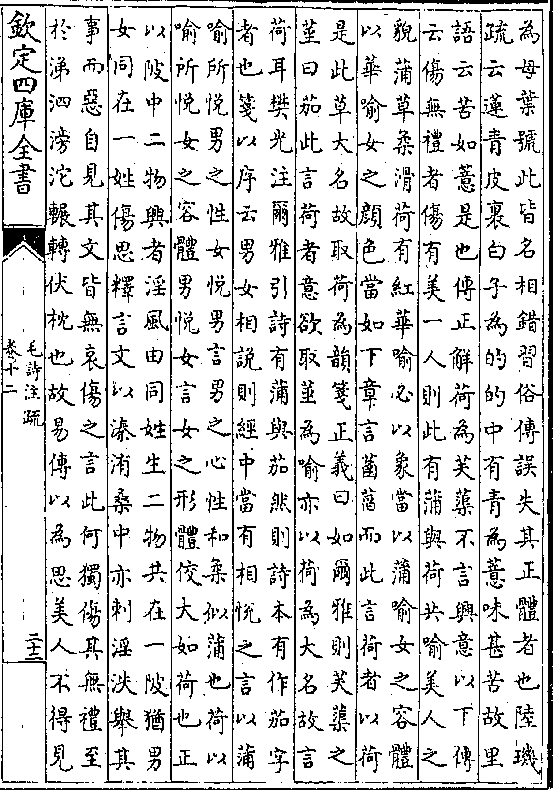 為母葉號此皆名相錯習俗傳誤失其正體者也陸璣
疏云蓮青皮裹白子為的的中有青為薏味甚苦故里
語云苦如薏是也傳正解荷為芙蕖不言興意以下傳
云傷無禮者傷有美一人則此有蒲與荷共喻美人之
貌蒲草柔滑荷有紅華喻必以象當以蒲喻女之容體
以華喻女之顔色當如下章言菡萏而此言荷者以荷
是此草大名故取荷為韻箋正義曰如爾雅則芙蕖之
莖曰茄此言荷者意欲取莖為喻亦以荷為大名故言
荷耳樊光注爾雅引詩有蒲與茄然則詩本有作茄字
者也箋以序云男女相說則經中當有相悅之言以蒲
喻所悅男之性女悅男言男之心性和柔似蒲也荷以
喻所悅女之容體男悅女言女之形體佼大如荷也正
以陂中二物興者淫風由同姓生二物共在一陂猶男
女同在一姓傷思釋言文以溱洧桑中亦刺淫泆舉其
事而惡自見其文皆無哀傷之言此何獨傷其無禮至
於涕泗滂沱輾轉伏枕也故易傳以為思美人不得見
欽定四庫全書
毛詩注疏
卷十二
二十三